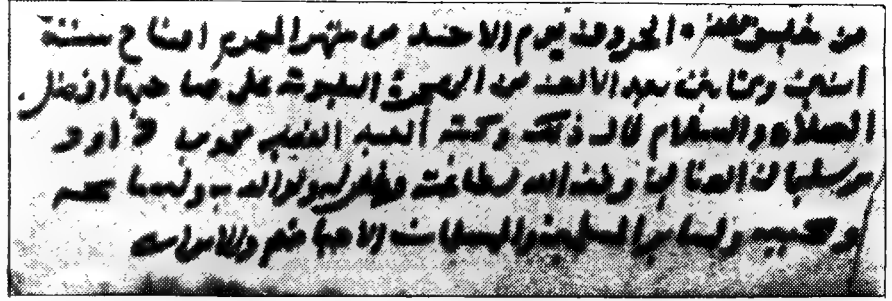 من خليق هذه الحروف يوم الاحد من شهر المحرم افتتاح سنة
اثنين وثمانين بعد الالف من الهجرة النبوية على صاحبها افضل
الصلاة والسلام قال ذلك وكتبه العبد الفقير موسى داود
بن سليمان العنانى وفقه الله لطاعته وغفر له ولوالديه ولمشايخه
ومحبيه ولسائر المسلمين والمسلمات الاحيا منهم والاموات